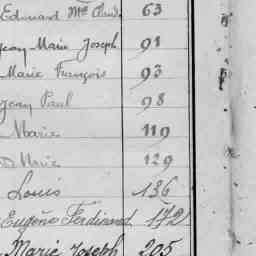 Edouard Mie Claude 63
Jean Marie Joseph 91
Marie François 93
Jean Paul 98
Marie 119
D Marie 129
Louis 136
Eugène Ferdinand 172
Marie Joseph 205